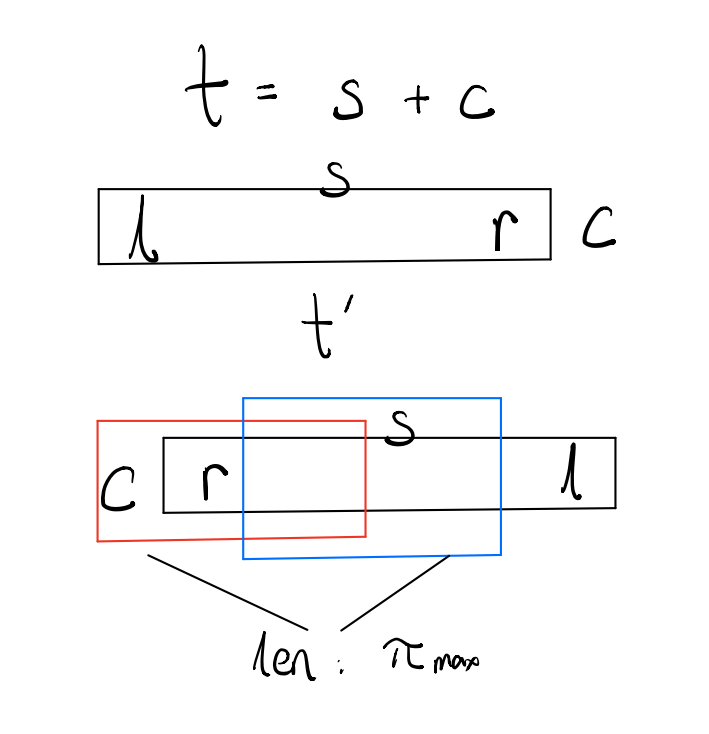 t = s + c
s
l r c
t'
s
c r l
len: π max